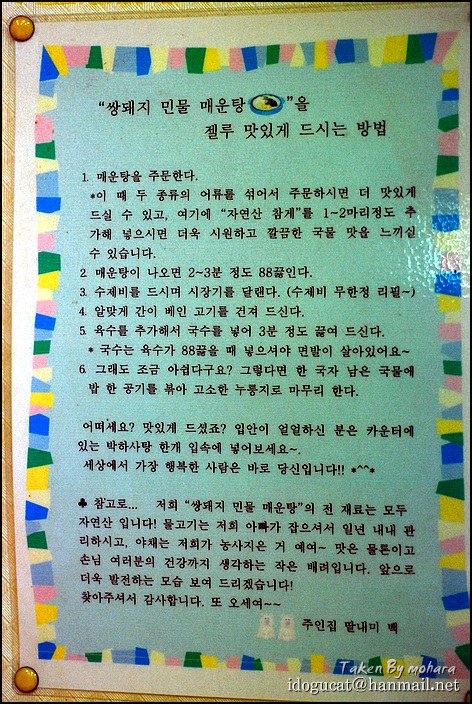 “쌍돼지 민물 매운탕”을
젤루 맛있게 드시는 방법
1. 매운탕을 주문한다.
*이 때 두 종류의 어류를 섞어서 주문하시면 더 맛있게
드실 수 있고, 여기에 “자연산 참게”를 1~2마리정도 추
가해 넣으시면 더욱 시원하고 깔끔한 국물 맛을 느끼실
수 있습니다.
2. 매운탕이 나오면 2~3분 정도 88끓인다.
3. 수제비를 드시며 시장기를 달랜다. (수제비 무한정 리필~)
4. 알맞게 간이 베인 고기를 건져 드신다.
5. 육수를 추가해서 국수를 넣어 3분 정도 끓여 드신다.
* 국수는 육수가 88끓을 때 넣으셔야 면발이 살아있어요~
6. 그래도 조금 아쉽다구요? 그렇다면 한 국자 남은 국물에
밥 한 공기를 볶아 고소한 누룽지로 마무리 한다.
어떠세요? 맛있게 드셨죠? 입안이 얼얼하신 분은 카운터에
있는 박하사탕 한개 입속에 넣어보세요~.
세상에서 가장 행복한 사람은 바로 당신입니다!! *^^*
♣ 참고로... 저희 “쌍돼지 민물 매운탕”의 전 재료는 모두
자연산 입니다! 물고기는 저희 아빠가 잡으셔서 일년 내내 관
리하시고, 야채는 저희가 농사지은 거 예여~ 맛은 물론이고
손님 여러분의 건강까지 생각하는 작은 배려입니다. 앞으로
더욱 발전하는 모습 보여 드리겠습니다!
찾아주셔서 감사합니다. 또 오세여~~
주인집 딸내미 백
Taken By mohara
idogucat@hanmail.net